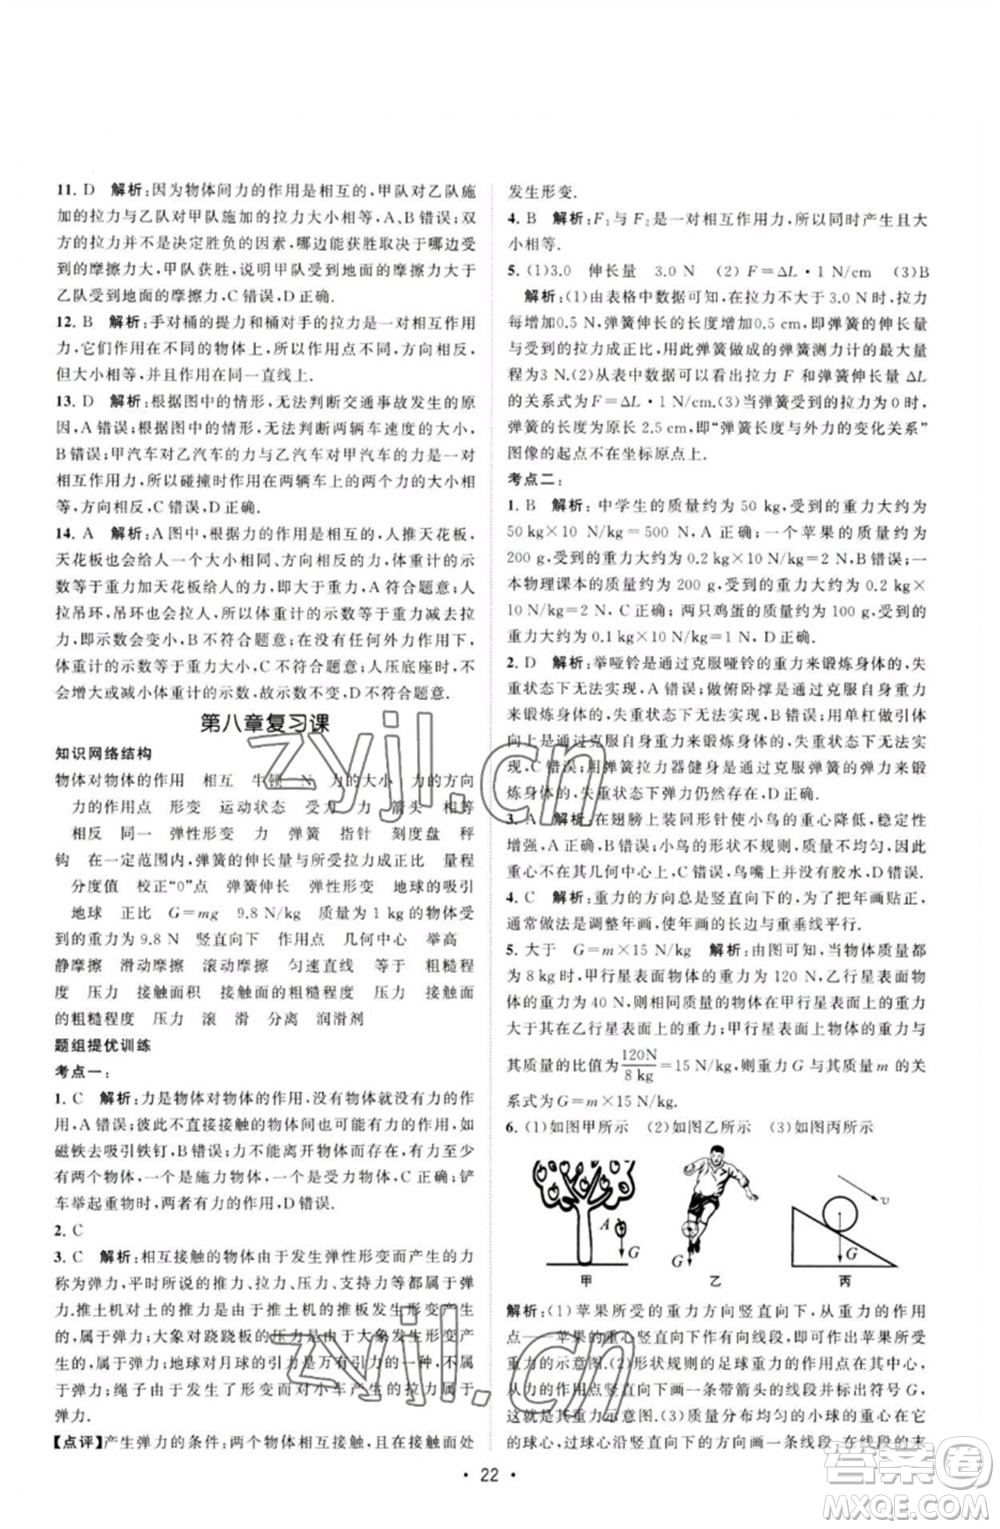 11. D　解析:因为物体间力的作用是相互的,甲队对乙队施
加的拉力与乙队对甲队施加的拉力大小相等,A、B错误;双
方的拉力不是决定胜负的因素,甲队获胜还是乙队获胜取决于
受到的摩擦力大小,甲队获胜,说明甲队受到的摩擦力大于
乙队受到的摩擦力,C错误,D正确.
12. B　解析:手对桶的提力和桶对手的拉力是一对相互作用
力,它们是作用在不同的物体上的,所以作用点不同,方向相反,
但大小相等,作用在同一直线上.
13. D　解析:根据图中的情形,无法判断交通事故发生的原
因,A错误;根据图中的情形,无法判断两辆车速度的大小,B
错误;甲汽车对乙汽车的力与乙汽车对甲汽车的力大小相
等,C错误;相互碰撞时作用在两辆车上的两个力大小相等,
方向相反,D正确.
14. A　解析:A图中,根据力的作用是相互的,人推天花板,
天花板也会给人一个大小相同、方向相反的力,体重计的示
数等于重力加天花板给人的力,A符合题意;人
拉吊环,吊环也会给人一个向上的力,体重计的示数等于重力减去拉力,
示数会变小,B不符合题意;在没有任何外力作用下,
体重计的示数等于重力,C不符合题意;人压底座时,不会
增大或减小体重计的示数,故示数不变,D不符合题意.
第八章复习课
知识网络结构
物体对物体的作用　相互　牛顿　N　力的大小　力的方向
力的作用点　形变　运动状态　受力　力　箭头　相等
相反　同一　弹性形变　力　弹簧　指针　刻度盘　秤
钩　在一定范围内,弹簧的伸长量与拉力成正比　量程
分度值　校正“0”点　弹簧伸长　弹性形变　地球的吸引
地球　正比　G=mg　9.8 N/kg　质量为1 kg的物体受
到的重力为9.8 N　竖直向下　作用点　几何中心　举高
静摩擦　滑动摩擦　滚动摩擦　匀速直线　等于　粗糙程
度　压力　接触面积　接触面的粗糙程度　压力　接触面
的粗糙程度　压力　滚　滑　分离　润滑剂
题组提优训练
考点一:
1. C　解析:力是物体对物体的作用,没有物体就没有力的作
用,A错误;彼此不直接接触的物体间也可能有力的作用,如
磁铁去吸引铁钉,B错误;力不能离开物体而存在,力至少有
两个物体,一个是施力物体,一个是受力物体,C正确;铲
车举起重物时,两者有力的作用,D错误.
2. C
3. C　解析:相互接触的物体由于发生弹性形变而产生的力
称为弹力,平时所说的推力、拉力、压力、支持力等都属于弹
力.推土机对土的推力是由于推土机发生形变产生的,
属于弹力;大象对跷跷板的压力是由于大象发生形变产生
的,属于弹力;地球对月球的引力是万有引力的一种,不属于
弹力;绳子由于形变而对小车产生的拉力属于
弹力.
【点评】产生弹力的条件:两个物体相互接触,且在接触面处
发生形变.
4. B　解析:F₁与F₂是一对相互作用力,所以同时产生且大
小相等.
5. (1)3.0　伸长量　3.0 N　(2)F=ΔL·1 N/cm　(3)B
解析:(1)由表格中数据可知,在拉力不大于3.0 N时,拉力
每增加0.5 N,弹簧伸长的长度增加0.5 cm,即弹簧的伸长量
与受到的拉力成正比,用此弹簧做成的弹簧测力计的最大量
程为3 N.(2)从表中数据可以看出拉力F和弹簧伸长量ΔL
的关系式为F=ΔL·1 N/cm.(3)当弹簧受到的拉力为0时,
弹簧的长度为原长2.5 cm,即“弹簧长度与外力的变化关系”
图像的起点不在坐标原点上.
考点二:
1. B　解析:中学生的质量约为50 kg,受到的重力大约为
50 kg×10 N/kg=500 N,A正确;一个苹果的质量约为
200 g,受到的重力大约为0.2 kg×10 N/kg=2 N,B错误;一
本物理课本的质量约为200 g,受到的重力大约为0.2 kg×
10 N/kg=2 N,C正确;两只鸡蛋的质量大约为100 g,受到的
重力大约为0.1 kg×10 N/kg=1 N,D正确.
2. D　解析:举哑铃是通过克服哑铃的重力来锻炼身体的,失
重状态下无法实现,A错误;做俯卧撑是通过克服自身重力
来锻炼身体的,失重状态下无法实现,B错误;用单杠做引体
向上是通过克服自身重力来锻炼身体的,失重状态下无法实
现,C错误;用弹簧拉力器健身是通过克服弹簧的弹力来
锻炼身体的,失重状态下弹力仍然存在,D正确.
3. A　解析:在翅膀上装回形针使小鸟的重心降低,A正确,
B错误;小鸟的形状不规则,重
心不在其几何中心上,C错误;鸟嘴上并没有胶水,D错误.
4. C　解析:重力的方向总是竖直向下的,为了把年画贴正,
通常做法是调整年画,使年画的长边与重垂线平行.
5. 大于　G=m×15 N/kg　解析:由图可知,当物体质量都
为8 kg时,甲行星表面物体的重力为120 N,乙行星表面物体
的重力为40 N,即相同质量的物体在甲行星表面上的重力
大于其在乙行星表面上的重力;甲行星上物体的重力与
其质量的比值为120N/8 kg=15 N/kg,则重力G与物体质量m的关
系式为G=m×15 N/kg.
6. (1)如图甲所示　(2)如图乙所示　(3)如图丙所示
A
G
G
G
v
甲　乙　丙
解析:(1)苹果所受的重力方向竖直向下,从重力的作用
点——苹果的重心竖直向下作有向线段,即为苹果所受
重力的示意图.(2)形状规则的足球重力的作用点在球心,从
重力的作用点竖直向下画一条带箭头的线段并标出符号G,
这就是其重力示意图.(3)质量分布均匀的小球的重心在
球心,过球心沿竖直向下方向画一条线段,在线段的末
· 22 ·
zyjl.cn
zyjl.cn
答案圈
MXQE.COM